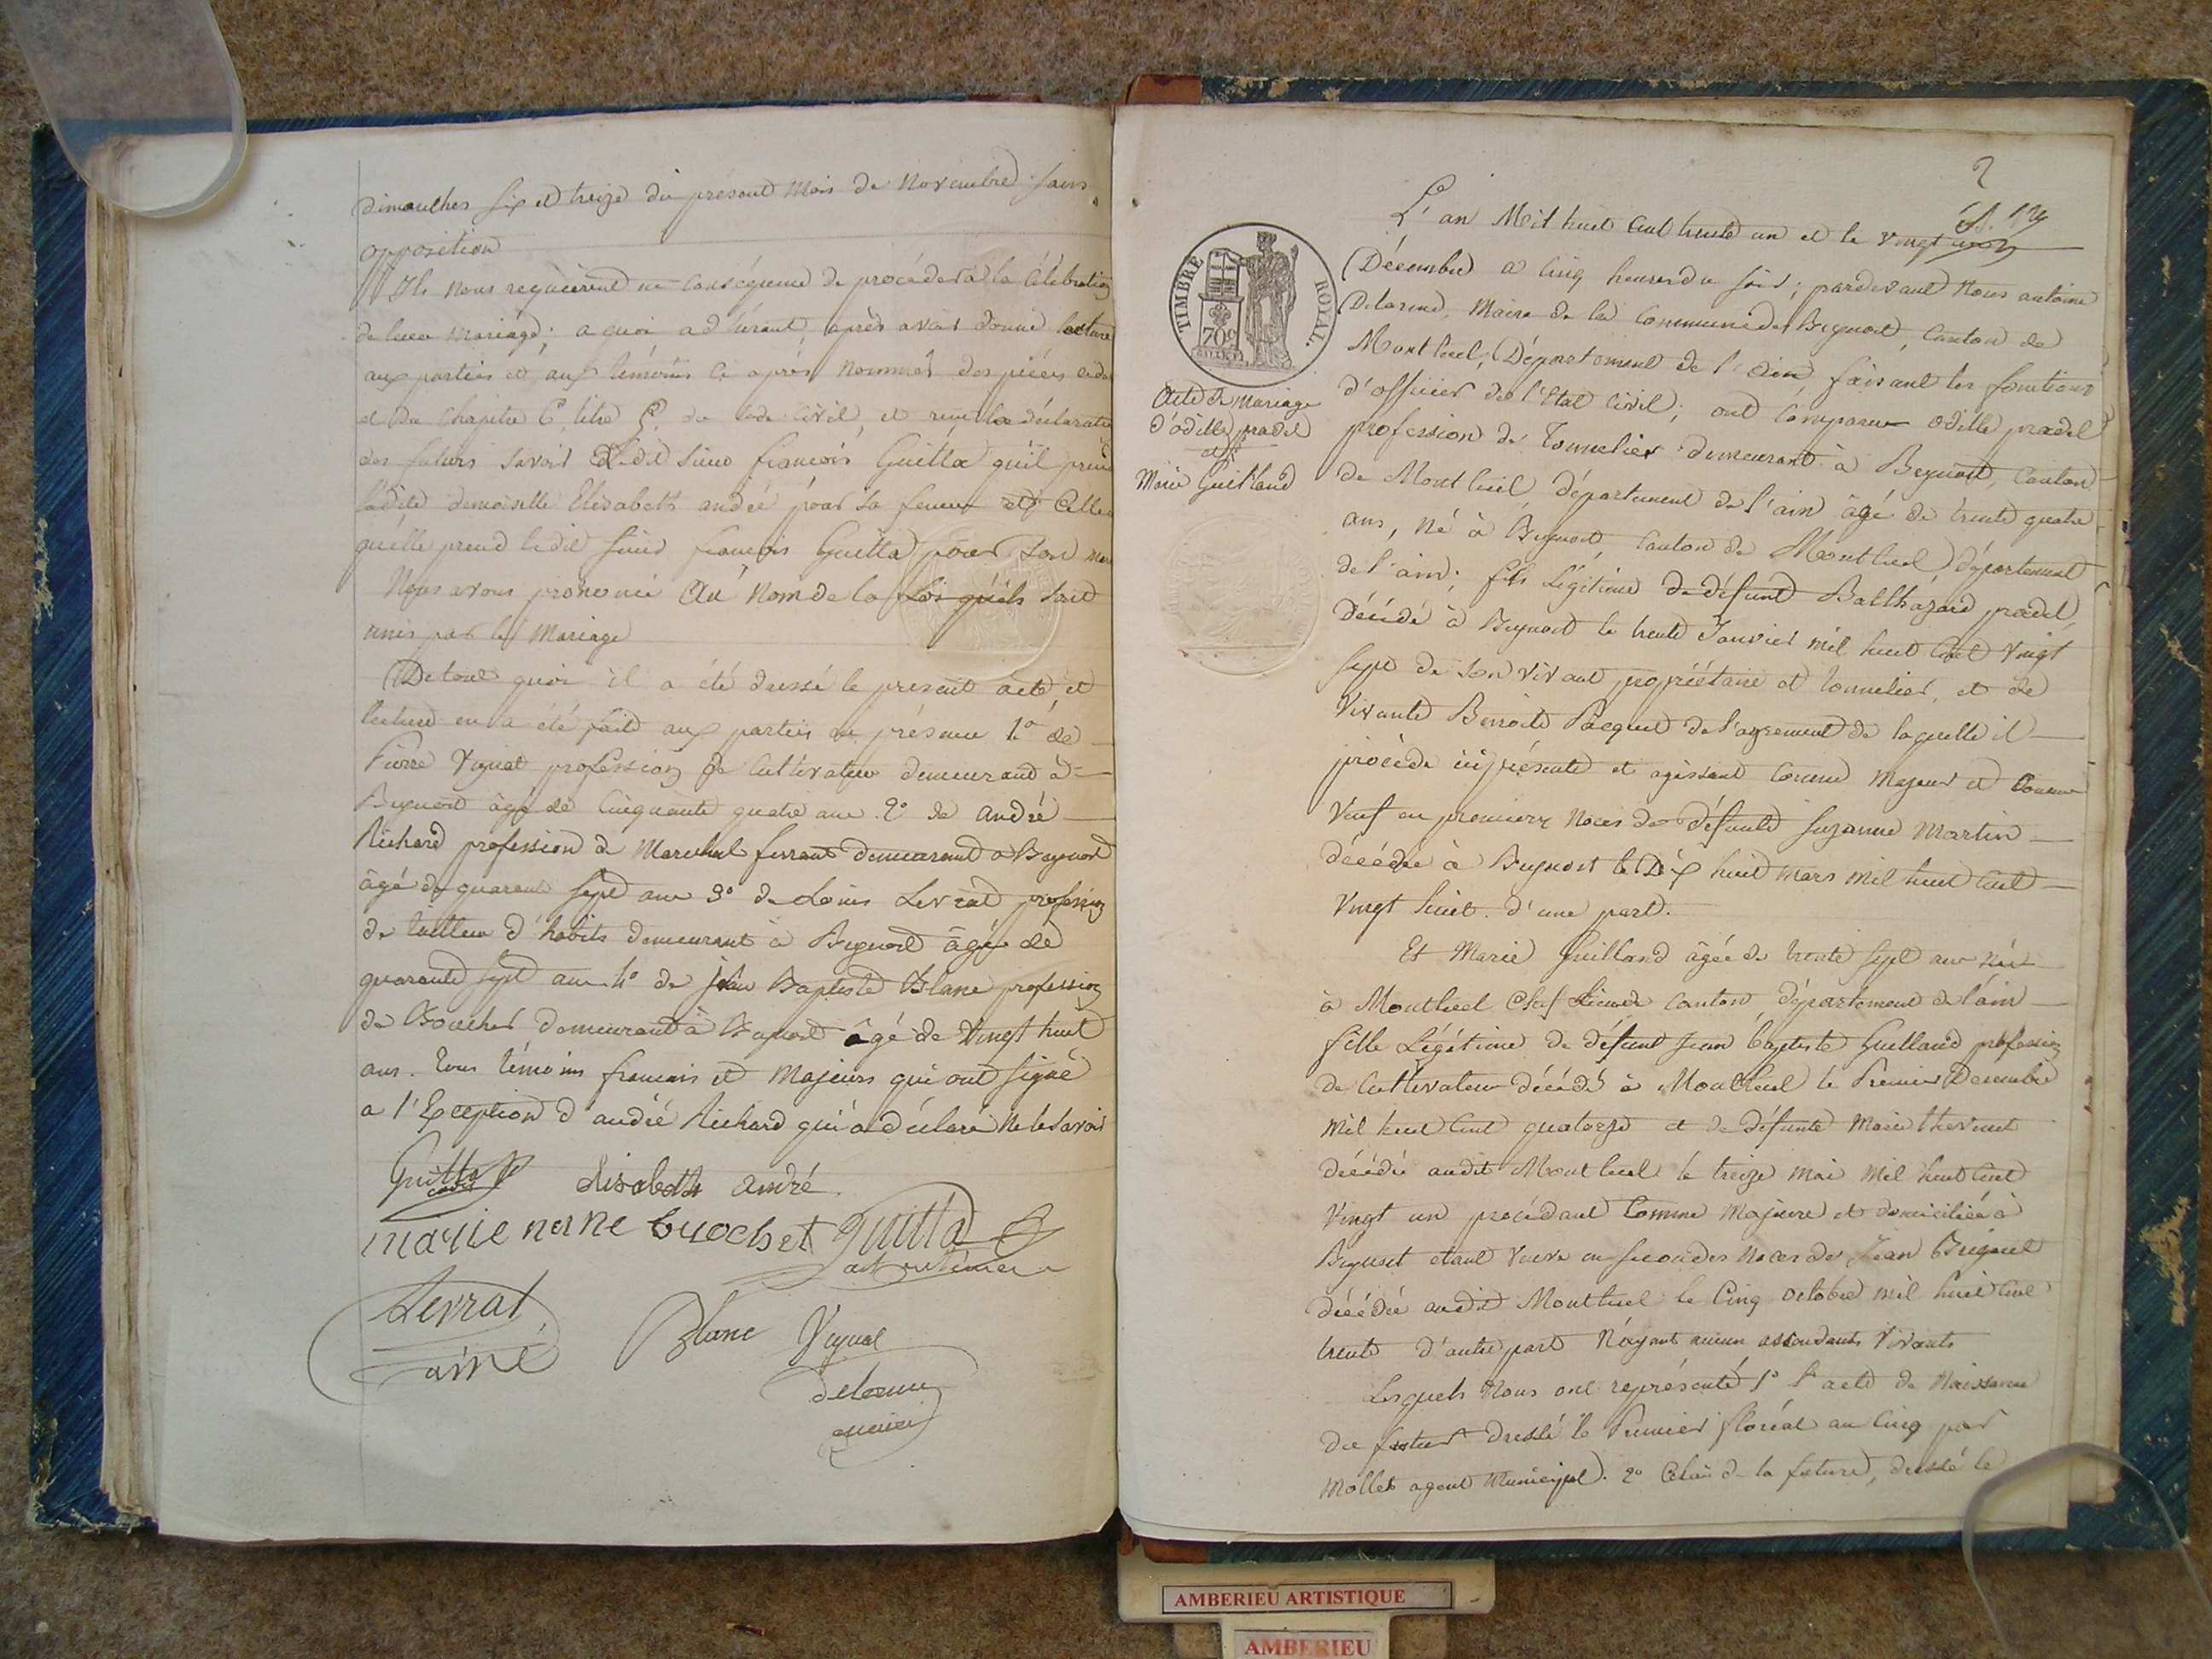 Dimanches six et treize du présent Mois de Novembre sans
opposition
Ils nous requièrent en conséquence de procéder à la Célébration
de leur Mariage; a quoi adhérant, après avoir donné lecture
aux parties et aux témoins ci après Nommés des pièces
et du Chapitre 6, titre 5. du Code Civil, et reçu la déclaration
des futurs savoir Ledit sieur françois Guilla qu'il prend
ladite demoiselle Elisabeth andré pour sa femme et Celle
quelle prend ledit sieur françois Guilla pour son mari
Nous avons prononcé Au Nom de la Loi qu'ils sont
unis par le Mariage
De tout quoi il a été dressé le présent acte et
lecture en a été faite aux parties en présence 1.° de
Pierre Vignat profession de Cultivateur demeurant à
Beynost âgé de Cinquante quatre ans 2° de André
Richard profession de Marechal ferrant demeurant à Beynost
âgé de quarante sept ans 3° de Louis Levrat profession
de tailleur d'habits demeurant à Beynost âgé de
quarante sept ans 4° de jean Baptiste Blanc profession
de Boucher demeurant à Beynost âgé de Vingt huit
ans. tous témoins français et Majeurs qui ont signé
a l'Exception d'andré Richard qui a déclaré ne le savoir
Guilla elisabeth andré
marie Guilla
Levrat
ainé Blanc Vignat
delorme
maire
2
L'an Mil huit Cent trente un et le vingt
Décembre a Cinq heures du soir; pardevant Nous antoine
Delorme, Maire de la Commune de Beynost, Canton de
Montluel, Département de l'ain faisant les fonctions
d'officier de l'Etat Civil; ont Comparu odille pradel
profession de Tonnelier demeurant à Beynost, Canton
de Montluel, département de l'ain âgé de trente quatre
ans, né à Beynost, Canton de Montluel, département
de l'ain; fils Légitime de défunt Balthazard pradel,
Décédé à Beynost le trente Janvier mil huit Cent Vingt
sept de son vivant propriétaire et tonnelier, et de
Vivante Benoite Pacquet de l'agrement de laquelle il
procède ici présente et agissant Comme Majeur et Comme
Veuf en premiere Noces de défunte suzanne Martin
décédée à Beynost le Dix huit Mars mil huit Cent
Vingt huit. d'une part.
Et Marie Guilland âgée de trente sept ans Née
à Montluel Chef Lieu de Canton département de l'ain
fille Légitime de défunt Jean baptiste Guilland profession
de Cultivateur décédé à Montluel le Premier Decembre
Mil huit Cent quatorze et de défunte Marie thevenet
décédée audit Montluel le treize Mai Mil huit Cent
Vingt un procédant Comme Majeure et domiciliée à
Beynost etant Veuve en secondes Noces de Jean
décédé audit Montluel le Cinq octobre mil huit Cent
trente d'autre part N'ayant aucun ascendants Vivants
Lesquels Nous ont représenté 1° L'acte de Naissance
du futur dressé le Premier floréal an Cinq par
Mollet agent Municipal. 2° Celui de la future, dressé le
TIMBRE ROYAL.
70c
Acte de Mariage
d'odille pradel
et
Marie Guilland
AMBERIEU ARTISTIQUE
AMBERIEU